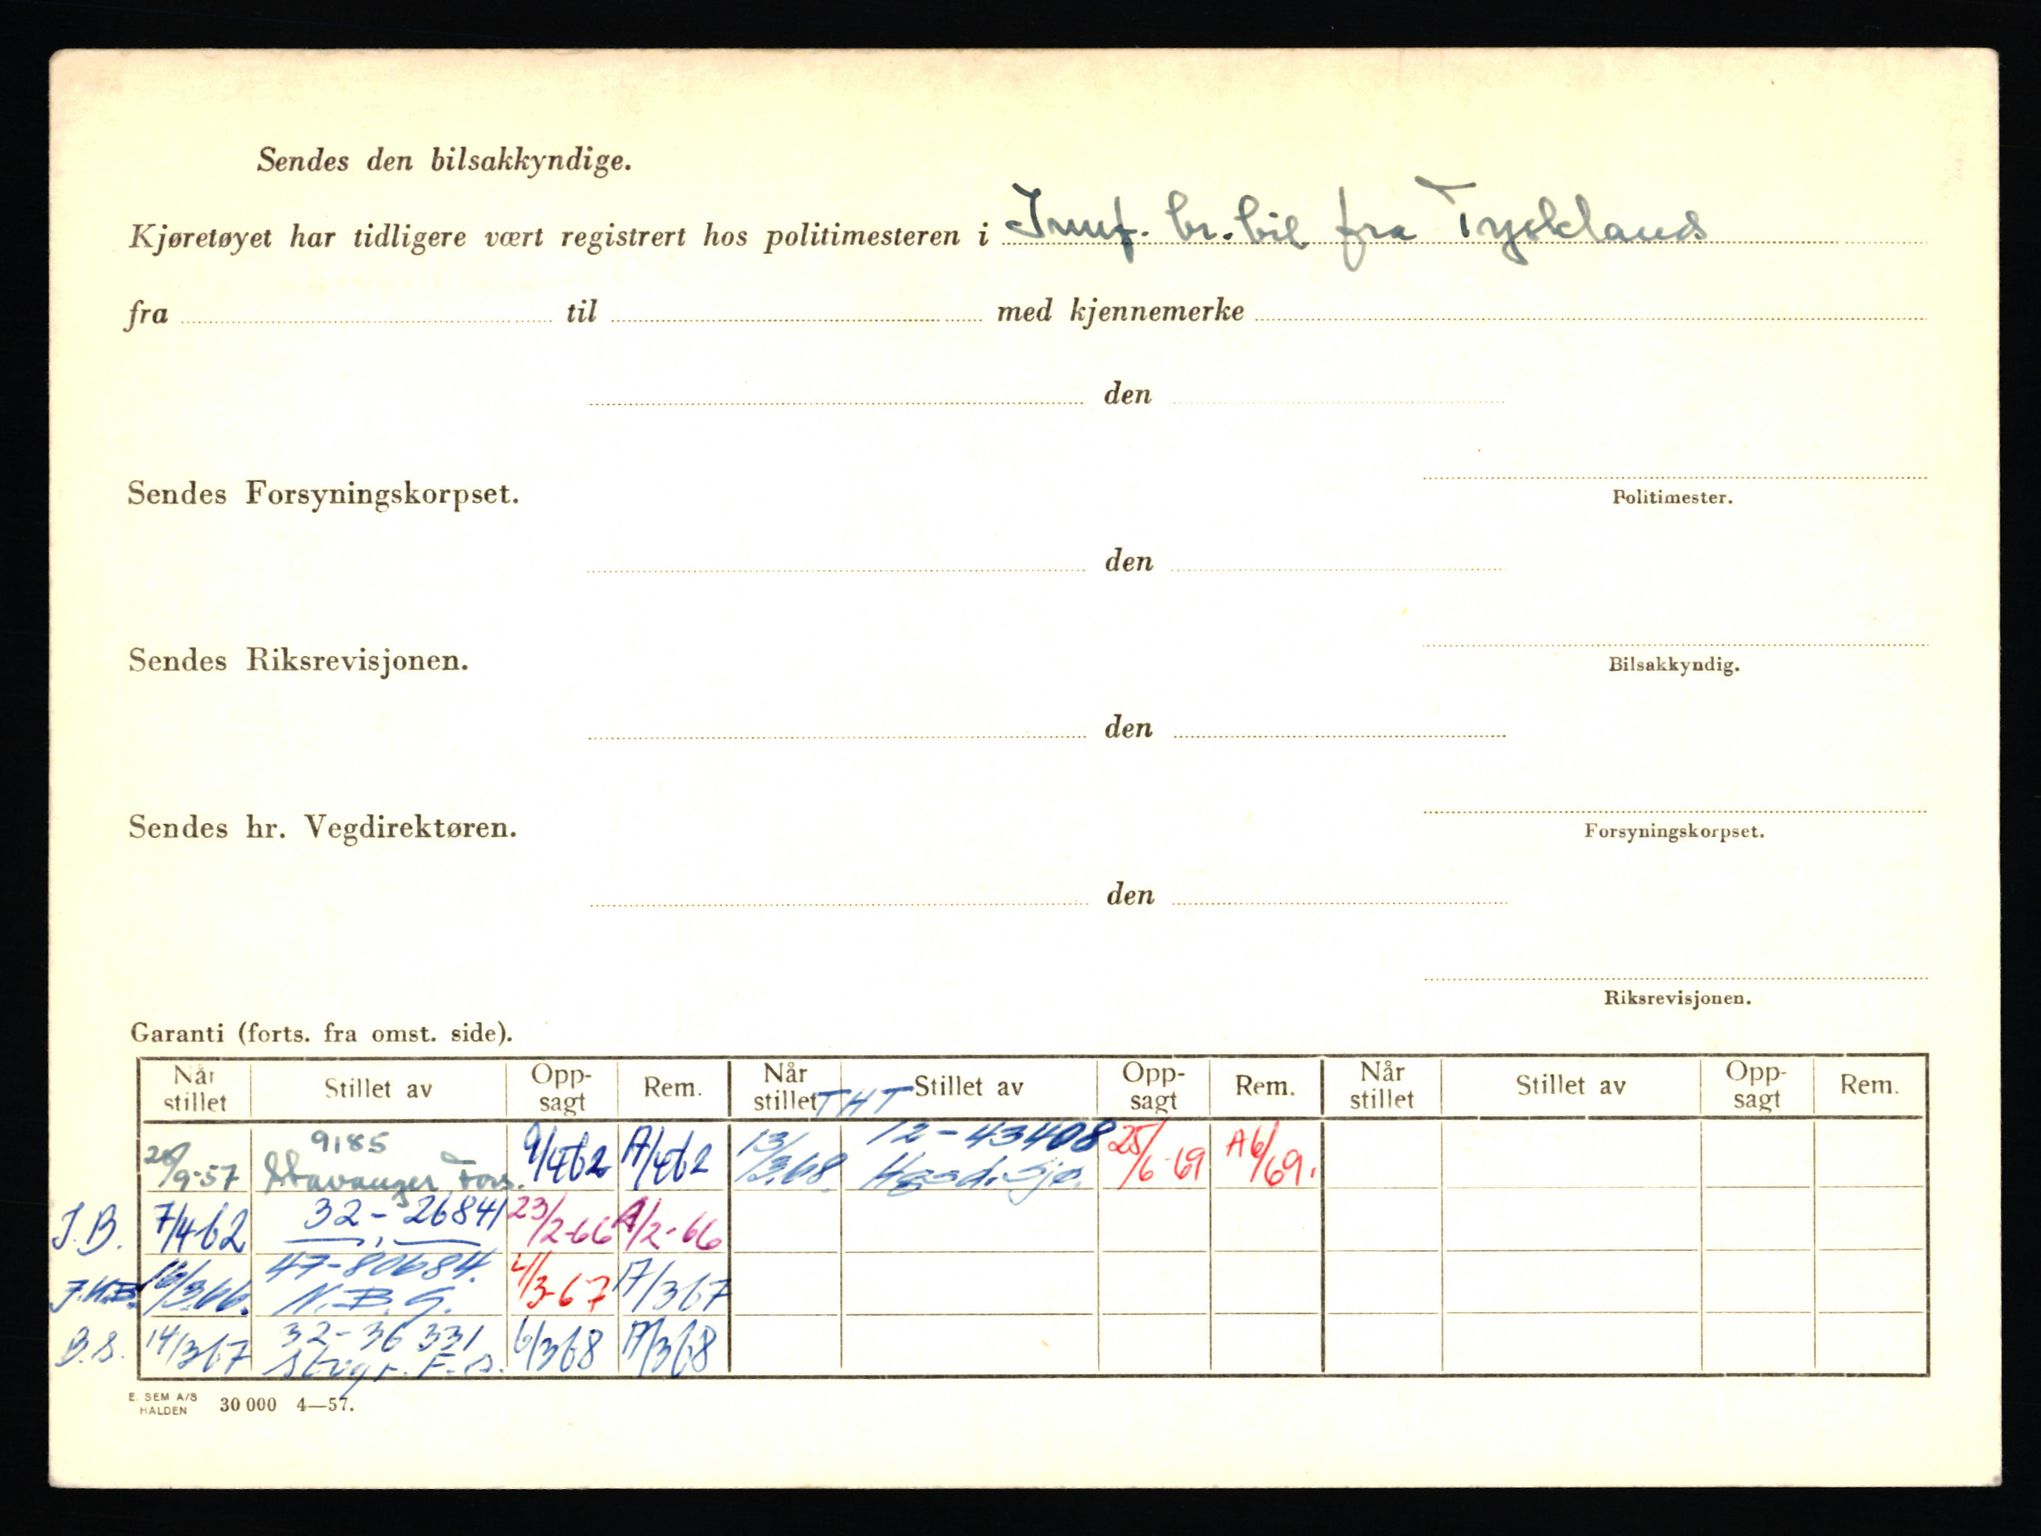 Sendes den bilsakkyndige.
Kjøretøyet har tidligere vært registrert hos politimesteren i Innf. br. bil fra Tyskland
fra til med kjennemerke
den
Sendes Forsyningskorpset.
Politimester.
den
Sendes Riksrevisjonen.
Bilsakkyndig.
den
Sendes hr. Vegdirektøren.
Forsyningskorpset.
den
Riksrevisjonen.
Garanti (forts. fra omst. side).
Når stillet Stillet av Opp-sagt Rem. Når stillet Stillet av Opp-sagt Rem. Når stillet Stillet av Opp-sagt Rem.
THT
9185 12-43408
26/9-57 Stavanger Fors. 9/462 A/462 13/368. Hgsd. Sjø. 25/6-69 A6/69.
J.B. 7/4-62 32-26841 23/2-66 A/2-66
47-80684.
16/366. N.B.G. 4/3-67 A/367
B.S. 14/367 32-36331 6/368 A/368
Stvgr. F.s.
E. SEM A/S
HALDEN 30 000 4—57.